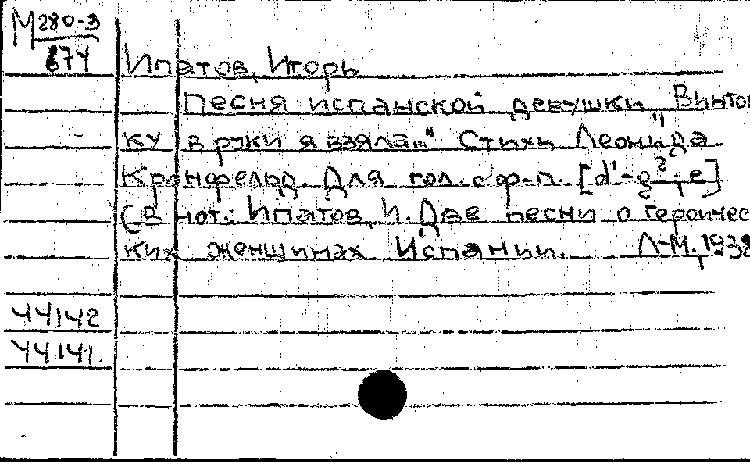 М280-3
674
Ипатов, Игорь
Песня испанской девушки "Винтов
ку в руки я взяла..." Стихи Леонида
Кронфельд. Для гол. с ф-п. [d¹-g²; e]
(В нот.: Ипатов, И. Две песни о героичес
ких женщинах Испании. Л-М, 1938
44142
44141.